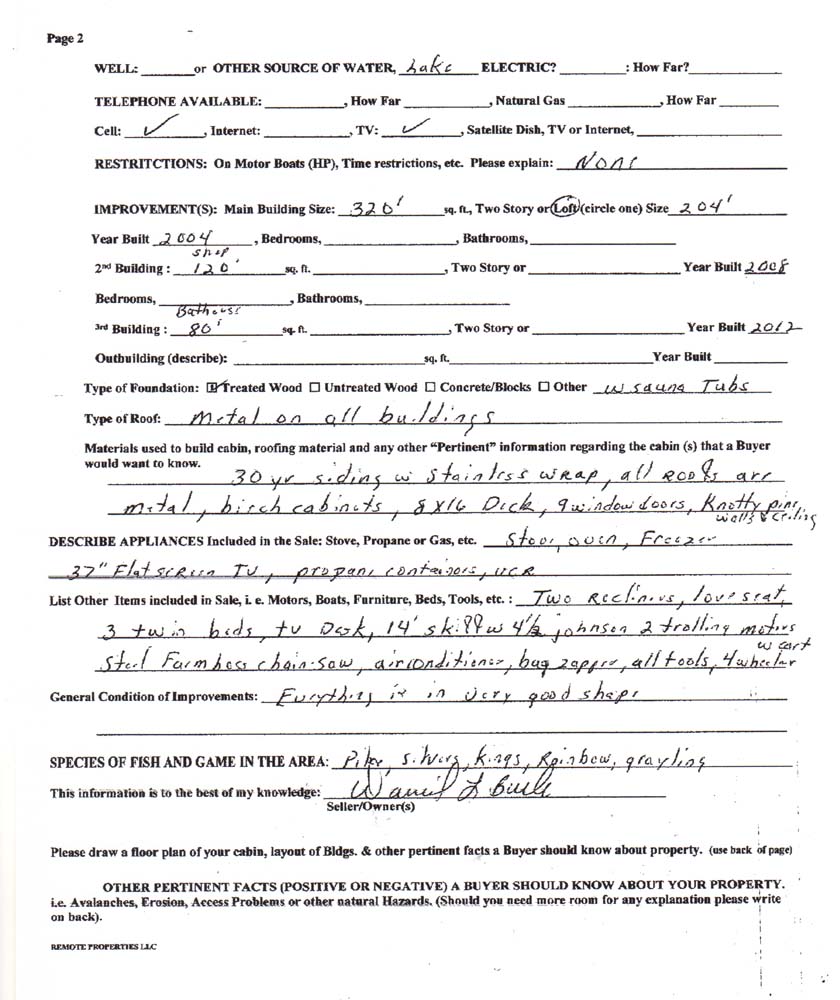 Page 2
WELL: ______ or OTHER SOURCE OF WATER, Lake ELECTRIC? ________: How Far?__________
TELEPHONE AVAILABLE: _________, How Far _________, Natural Gas _________, How Far ______
Cell: ✓, Internet: _________, TV: ✓, Satellite Dish, TV or Internet, ______________
RESTRITCTIONS: On Motor Boats (HP), Time restrictions, etc. Please explain: None
IMPROVEMENT(S): Main Building Size: 320' sq. ft., Two Story or Loft (circle one) Size 204'
Year Built 2004, Bedrooms, ______________, Bathrooms, ______________
shop
2nd Building : 120' sq. ft. ______________, Two Story or ______________ Year Built 2008
Bedrooms, ______________, Bathrooms, ______________
Bathouse
3rd Building : 80' sq. ft. ______________, Two Story or ______________ Year Built 2012
Outbuilding (describe): ______________ sq. ft. ______________ Year Built ________
Type of Foundation: ☑ Treated Wood ☐ Untreated Wood ☐ Concrete/Blocks ☐ Other w sauna Tubs
Type of Roof: Metal on all buildings
Materials used to build cabin, roofing material and any other “Pertinent” information regarding the cabin (s) that a Buyer
would want to know.
30 yr siding w Stainless wrap, all Roofs are
metal, birch cabinets, 8x16 Deck, 9 window doors, Knotty pine
walls & Ceiling
DESCRIBE APPLIANCES Included in the Sale: Stove, Propane or Gas, etc. Stove, oven, Freezer
37" Flat screen TV, propane containers, VCR
List Other Items included in Sale, i. e. Motors, Boats, Furniture, Beds, Tools, etc. : Two Recliners, love seat,
3 twin beds, tv Desk, 14' skiff w 4½ johnson 2 trolling motors
w cart
Steel Farm boss chain-saw, airconditioner, bug zapper, all tools, 4 wheeler
General Condition of Improvements: Everything is in very good shape
SPECIES OF FISH AND GAME IN THE AREA: Pike, silvers, kings, Rainbow, grayling
This information is to the best of my knowledge:
Seller/Owner(s)
Please draw a floor plan of your cabin, layout of Bldgs. & other pertinent facts a Buyer should know about property. (use back of page)
OTHER PERTINENT FACTS (POSITIVE OR NEGATIVE) A BUYER SHOULD KNOW ABOUT YOUR PROPERTY.
i.e. Avalanches, Erosion, Access Problems or other natural Hazards. (Should you need more room for any explanation please write
on back).
REMOTE PROPERTIES LLC